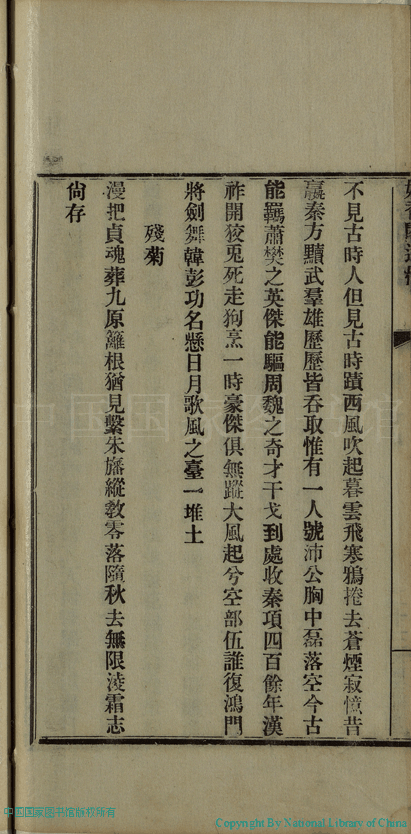 不見古時人但見古時蹟西風吹起暮雲飛寒鴉捲去蒼煙寂憶昔
嬴秦方黷武羣雄歷歷皆吞取惟有一人號沛公胸中磊落空今古
能羈蕭樊之英傑能驅周魏之奇才干戈到處收秦項四百餘年漢
祚開狡兎死走狗烹一時豪傑俱無蹤大風起兮空部伍誰復鴻門
將劍舞韓彭功名懸日月歌風之臺一堆土
殘菊
漫把貞魂葬九原籬根猶見繫朱旛縱教零落隨秋去無限淩霜志
尙存
中国国家图书馆版权所有
Copyright By National Library of China